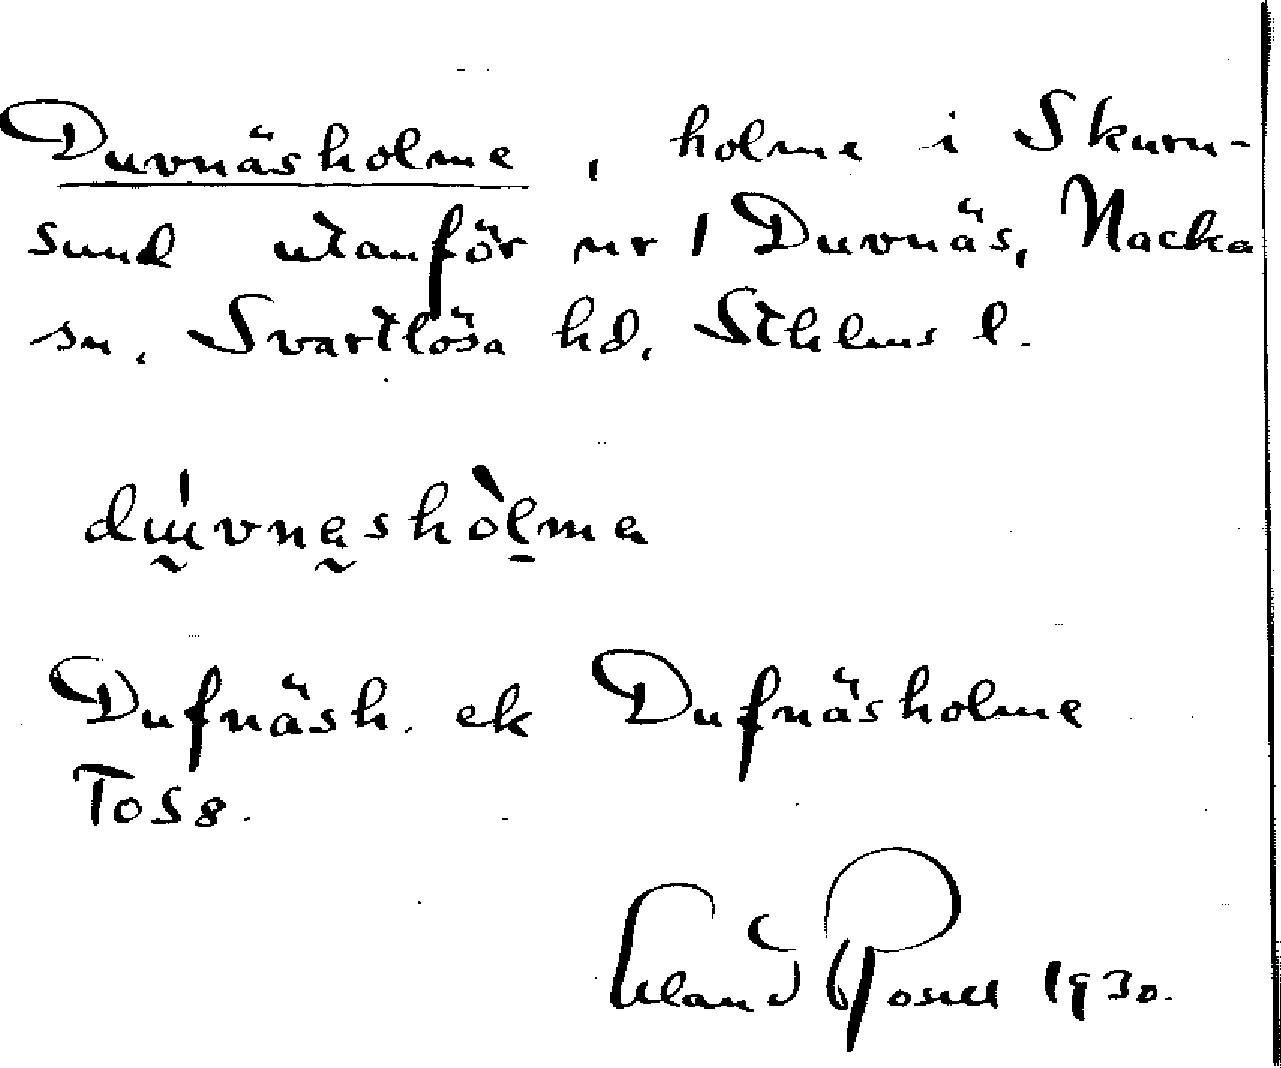 Duvnäsholme, holme i Skuru-
sund utanför nr 1 Duvnäs, Nacka
sn. Svartlösa hd. Sthlms l.
dɯ́vnəshòlmə
Dufnäsh. ek Dufnäsholme
To S 8.
Erland Rosell 1930.